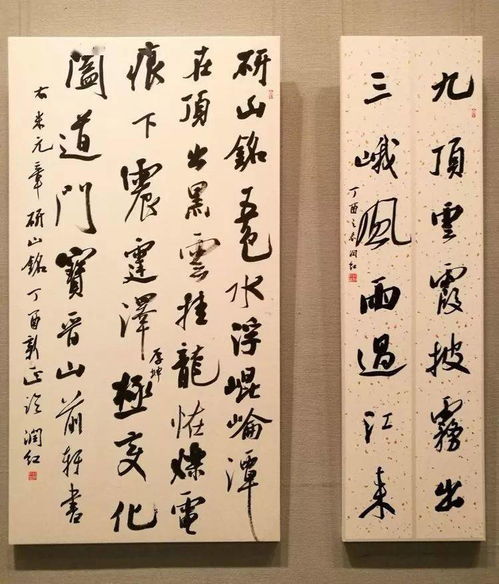 九頂雲霞披霧出
三峨風雨過江来
丁酉之春潤紅
研山銘五色水浮崐崘潭
在頂出黑雲挂龍怪爍電
痕下震霆澤極变化
厚坤
闔道門寶晉山前軒書
右米元章研山銘丁酉新正潤紅